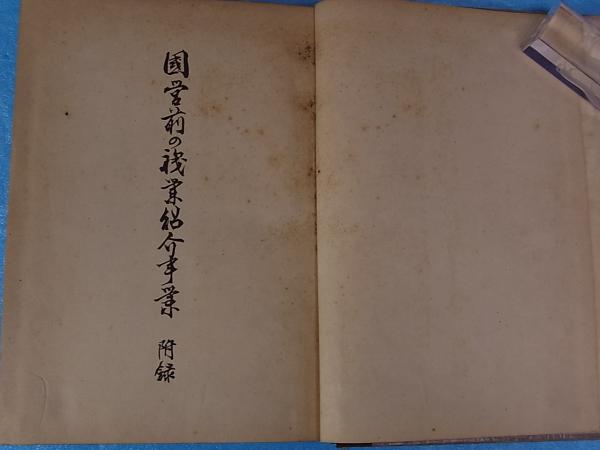 國営前の職業紹介事業 附録